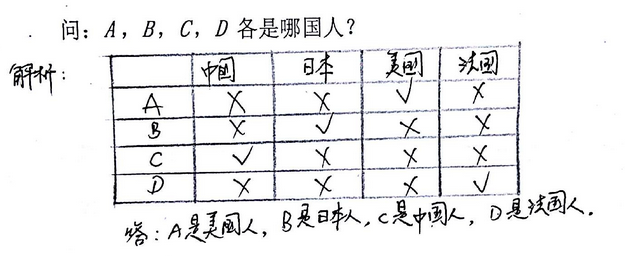 问：A，B，C，D 各是哪国人？
解析：
中国 日本 美国 法国
A X X √ X
B X √ X X
C √ X X X
D X X X √
答：A是美国人，B是日本人，C是中国人，D是法国人．